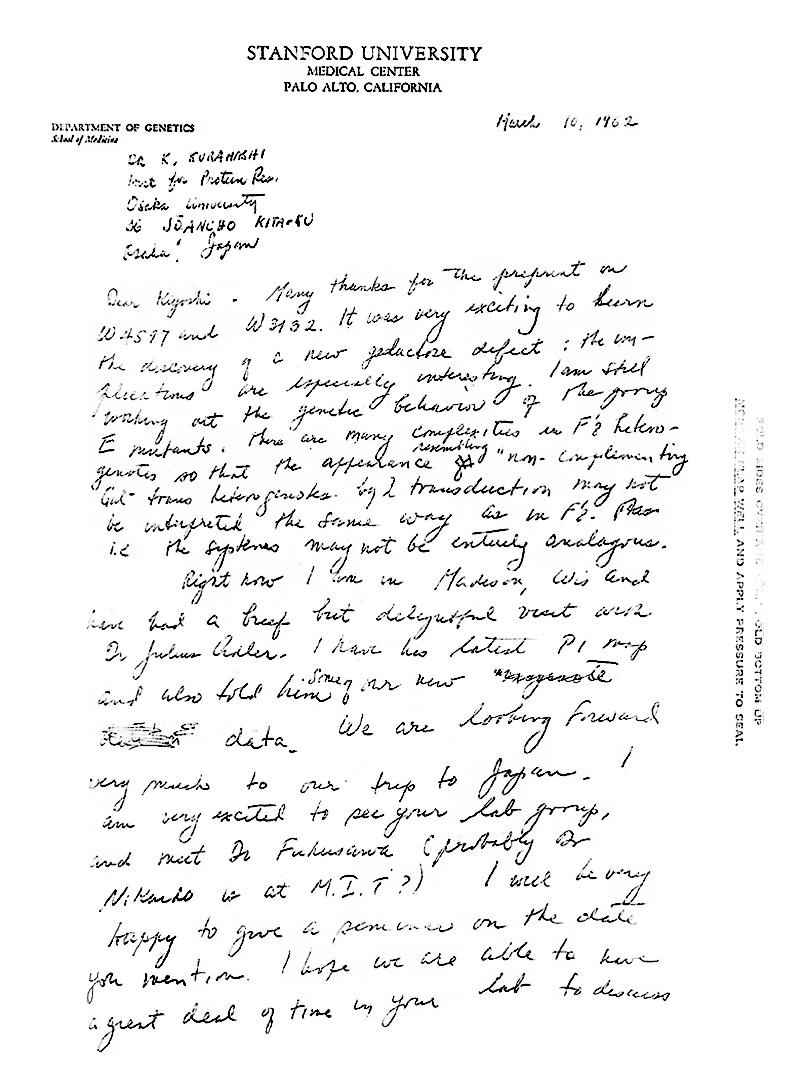 STANFORD UNIVERSITY
MEDICAL CENTER
PALO ALTO, CALIFORNIA
DEPARTMENT OF GENETICS
School of Medicine
March 10, 1962
Dr K. KURAHASHI
Inst for Protein Res.
Osaka University
36 JŌANCHO KITA-KU
Osaka, Japan
Dear Kiyoshi - Many thanks for the preprint on
W4597 and W3132. It was very exciting to learn
the discovery of a new galactose defect: the im-
plications are especially interesting. I am still
working out the genetic behavior of the group
E mutants. There are many complexities in F's hetero-
genotes so that the appearance resembling "non-complementing
Gal- trans heterogenotes by λ transduction may not
be interpreted the same way as in F's.
i.e the systems may not be entirely analogous.
Right now I am in Madison, Wis and
have had a brief but delightful visit with
Dr Julius Adler. I have his latest P1 map
and also told him some of our new
data. We are looking forward
very much to our trip to Japan. I
am very excited to see your lab group,
and meet Dr Fukusawa (probably Dr
Nikaido is at M.I.T?) I will be very
happy to give a seminar on the date
you mention. I hope we are able to have
a great deal of time in your lab to discuss
AND APPLY PRESSURE TO SEAL
BOTTOM UP